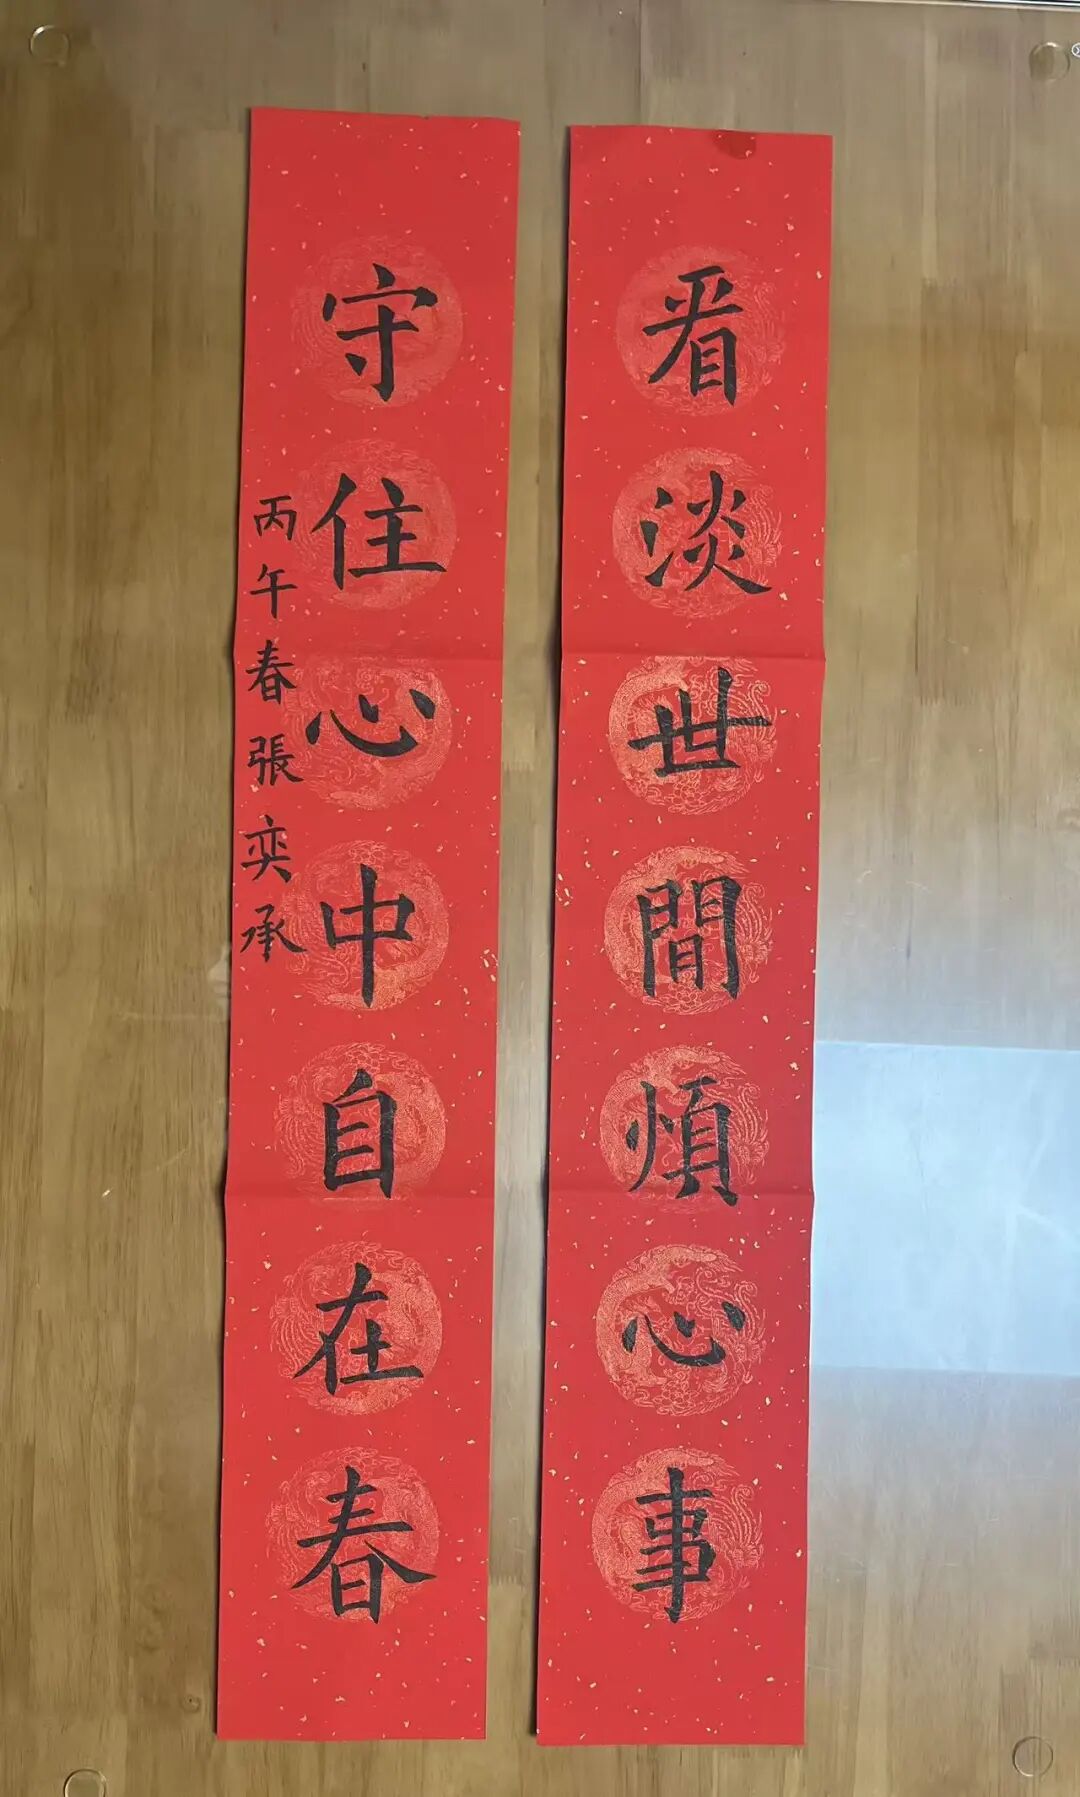 看淡世間煩心事
守住心中自在春
丙午春張奕承